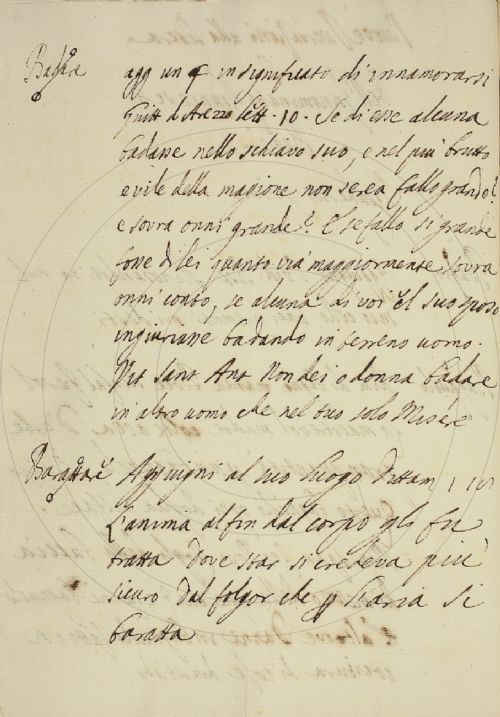 Badare agg un § in significato di innamorarsi
Guitt d Arezzo lett. 10. Se di esse alcuna
badasse nello schiavo suo, e nel più brutto
e vile della magione non serea fallo grande?
e sovra onni grande? E se fallo sì grande
fosse di lei quanto via maggiormente sovra
onni conto, se alcuna di voi el suo sposo
ingiuriasse badando in terreno uomo.
Vit Sant Ant Non dei o donna badare
in altro uomo che nel tuo solo Misere
Barattare Aggiugni al suo luogo Dittam 1
L'anima al fin dal corpo gli fu
tratta dove star si credeva più
sicuro dal folgor che p l'aria si
baratta